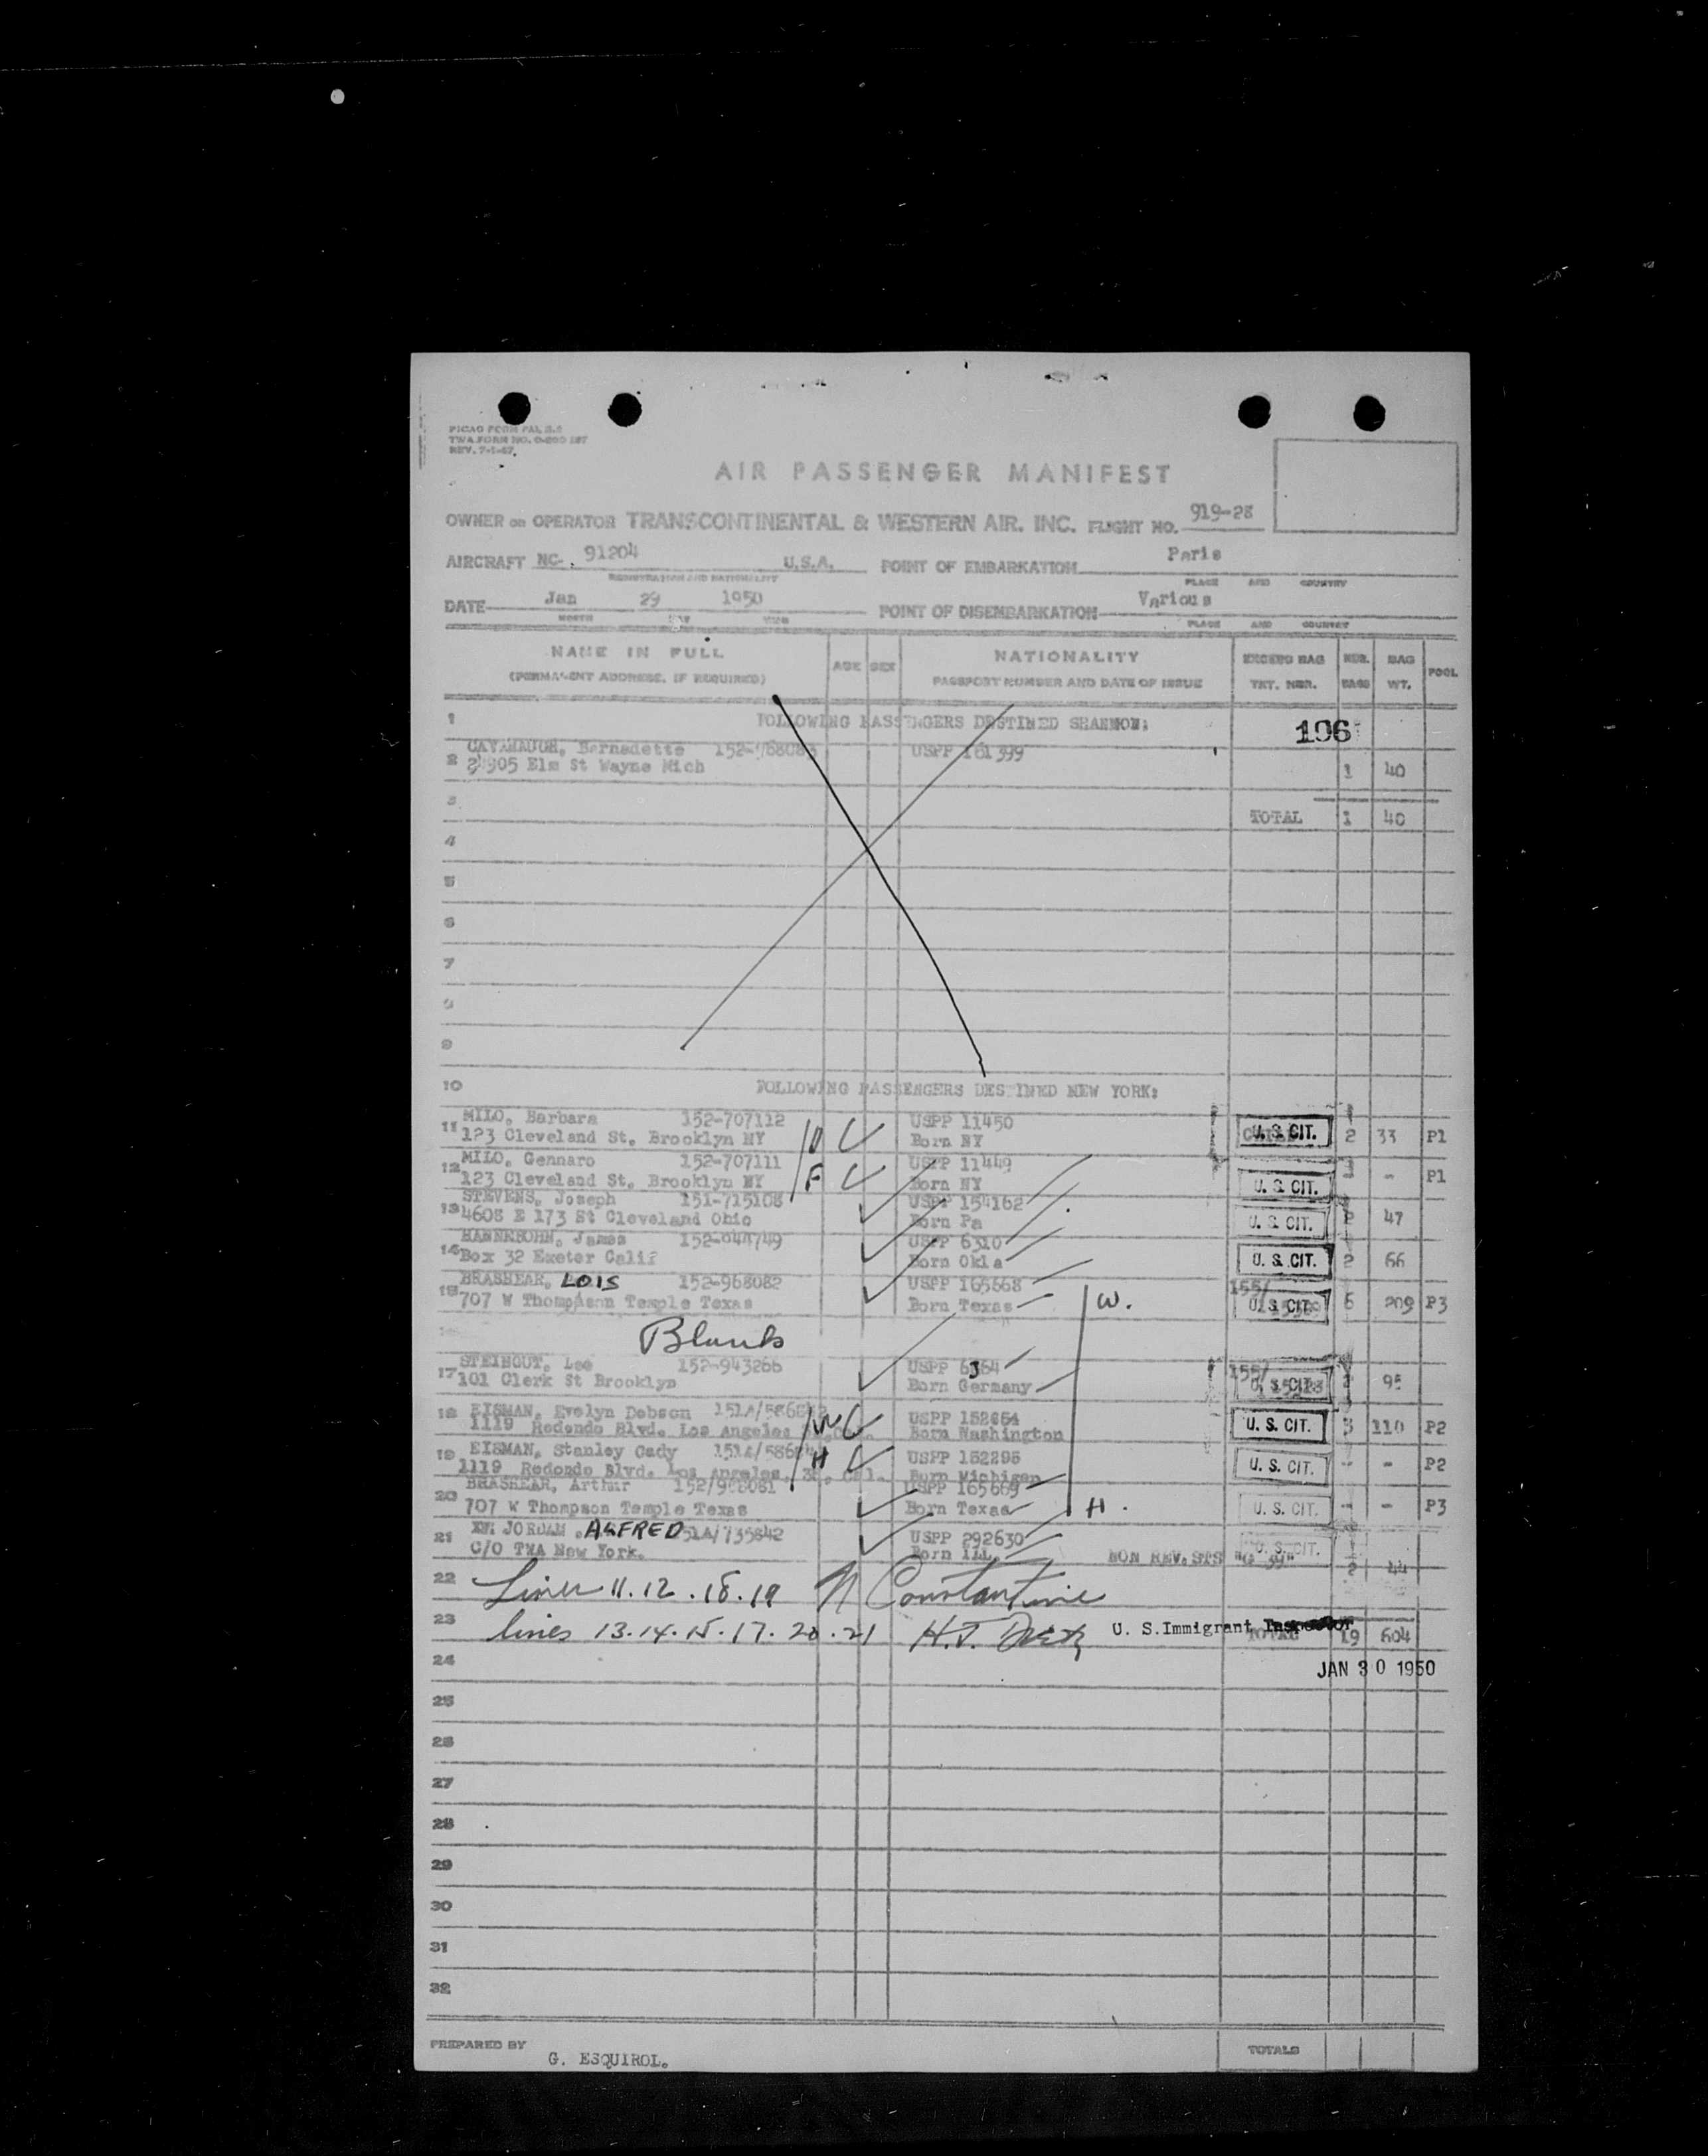 PICAO FORM PAX
TWA FORM NO.
REV. 7-1-47
AIR PASSENGER MANIFEST
OWNER OR OPERATOR TRANSCONTINENTAL & WESTERN AIR. INC. FLIGHT NO. 919-28
AIRCRAFT NC- 91204 U.S.A. POINT OF EMBARKATION Paris
REGISTRATION AND NATIONALITY PLACE AND COUNTRY
DATE Jan 29 1950 POINT OF DISEMBARKATION Various
MONTH DAY YEAR PLACE AND COUNTRY
NAME IN FULL (PERMANENT ADDRESS, IF REQUIRED) AGE SEX NATIONALITY PASSPORT NUMBER AND DATE OF ISSUE EXCESS BAG TKT. NBR. NBR. BAGS BAG WT. POOL
1 FOLLOWING PASSENGERS DESTINED SHANNON: 106
CAVANAUGH, Bernadette 152-968083 USPP 161399
2 905 Elm St Wayne Mich 1 40
3 TOTAL 1 40
4
5
6
7
8
9
10 FOLLOWING PASSENGERS DESTINED NEW YORK:
MILO, Barbara 152-707112 USPP 11450
11 123 Cleveland St. Brooklyn NY D Born NY U. S. CIT. 2 33 P1
MILO, Gennaro 152-707111 USPP 11449
12 123 Cleveland St. Brooklyn NY F Born NY U. S. CIT. - P1
STEVENS, Joseph 151-715108 USPP 154162
13 4608 E 173 St Cleveland Ohio Born Pa U. S. CIT. 2 47
James USPP 6310
14 Box 32 Exeter Calif Born Okla U. S. CIT. 2 66
BRASHEAR, LOIS 152-968082 USPP 165668 155/
15 707 W Thompson Temple Texas Born Texas W. U. S. CIT. 6 209 P3
Blank
STEINGUT, Lee 152-943266 USPP 6364 155/
17 101 Clerk St Brooklyn Born Germany U. S. CIT. 95
18 EISMAN, Evelyn Dobson 151A/ USPP 152654
1119 Redondo Blvd. Los Angeles W Born Washington U. S. CIT. 3 110 P2
19 EISMAN, Stanley Cady 151A/ H USPP 152295
1119 Redondo Blvd. Los Angeles, Cal. Born Michigan U. S. CIT. - - P2
BRASHEAR, Arthur 152/968081 USPP 165669
20 707 W Thompson Temple Texas Born Texas H. U. S. CIT. - - P3
21 JORDAN, ALFRED 51A/735842 USPP 292630
C/O TWA New York. Born Ill. NON REV.STS U. S. CIT. 2 44
22 Lines 11.12.18.19 N Constantine
23 lines 13.14.15.17.20.21 U. S. Immigrant Inspector TOTAL 19 604
24 JAN 30 1950
25
26
27
28
29
30
31
32
PREPARED BY G. ESQUIROL. TOTALS